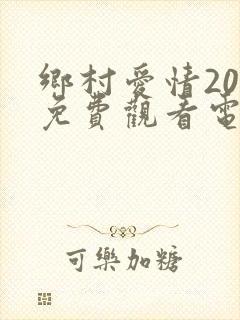 鄉村愛情20
免費觀看電
可樂加糖